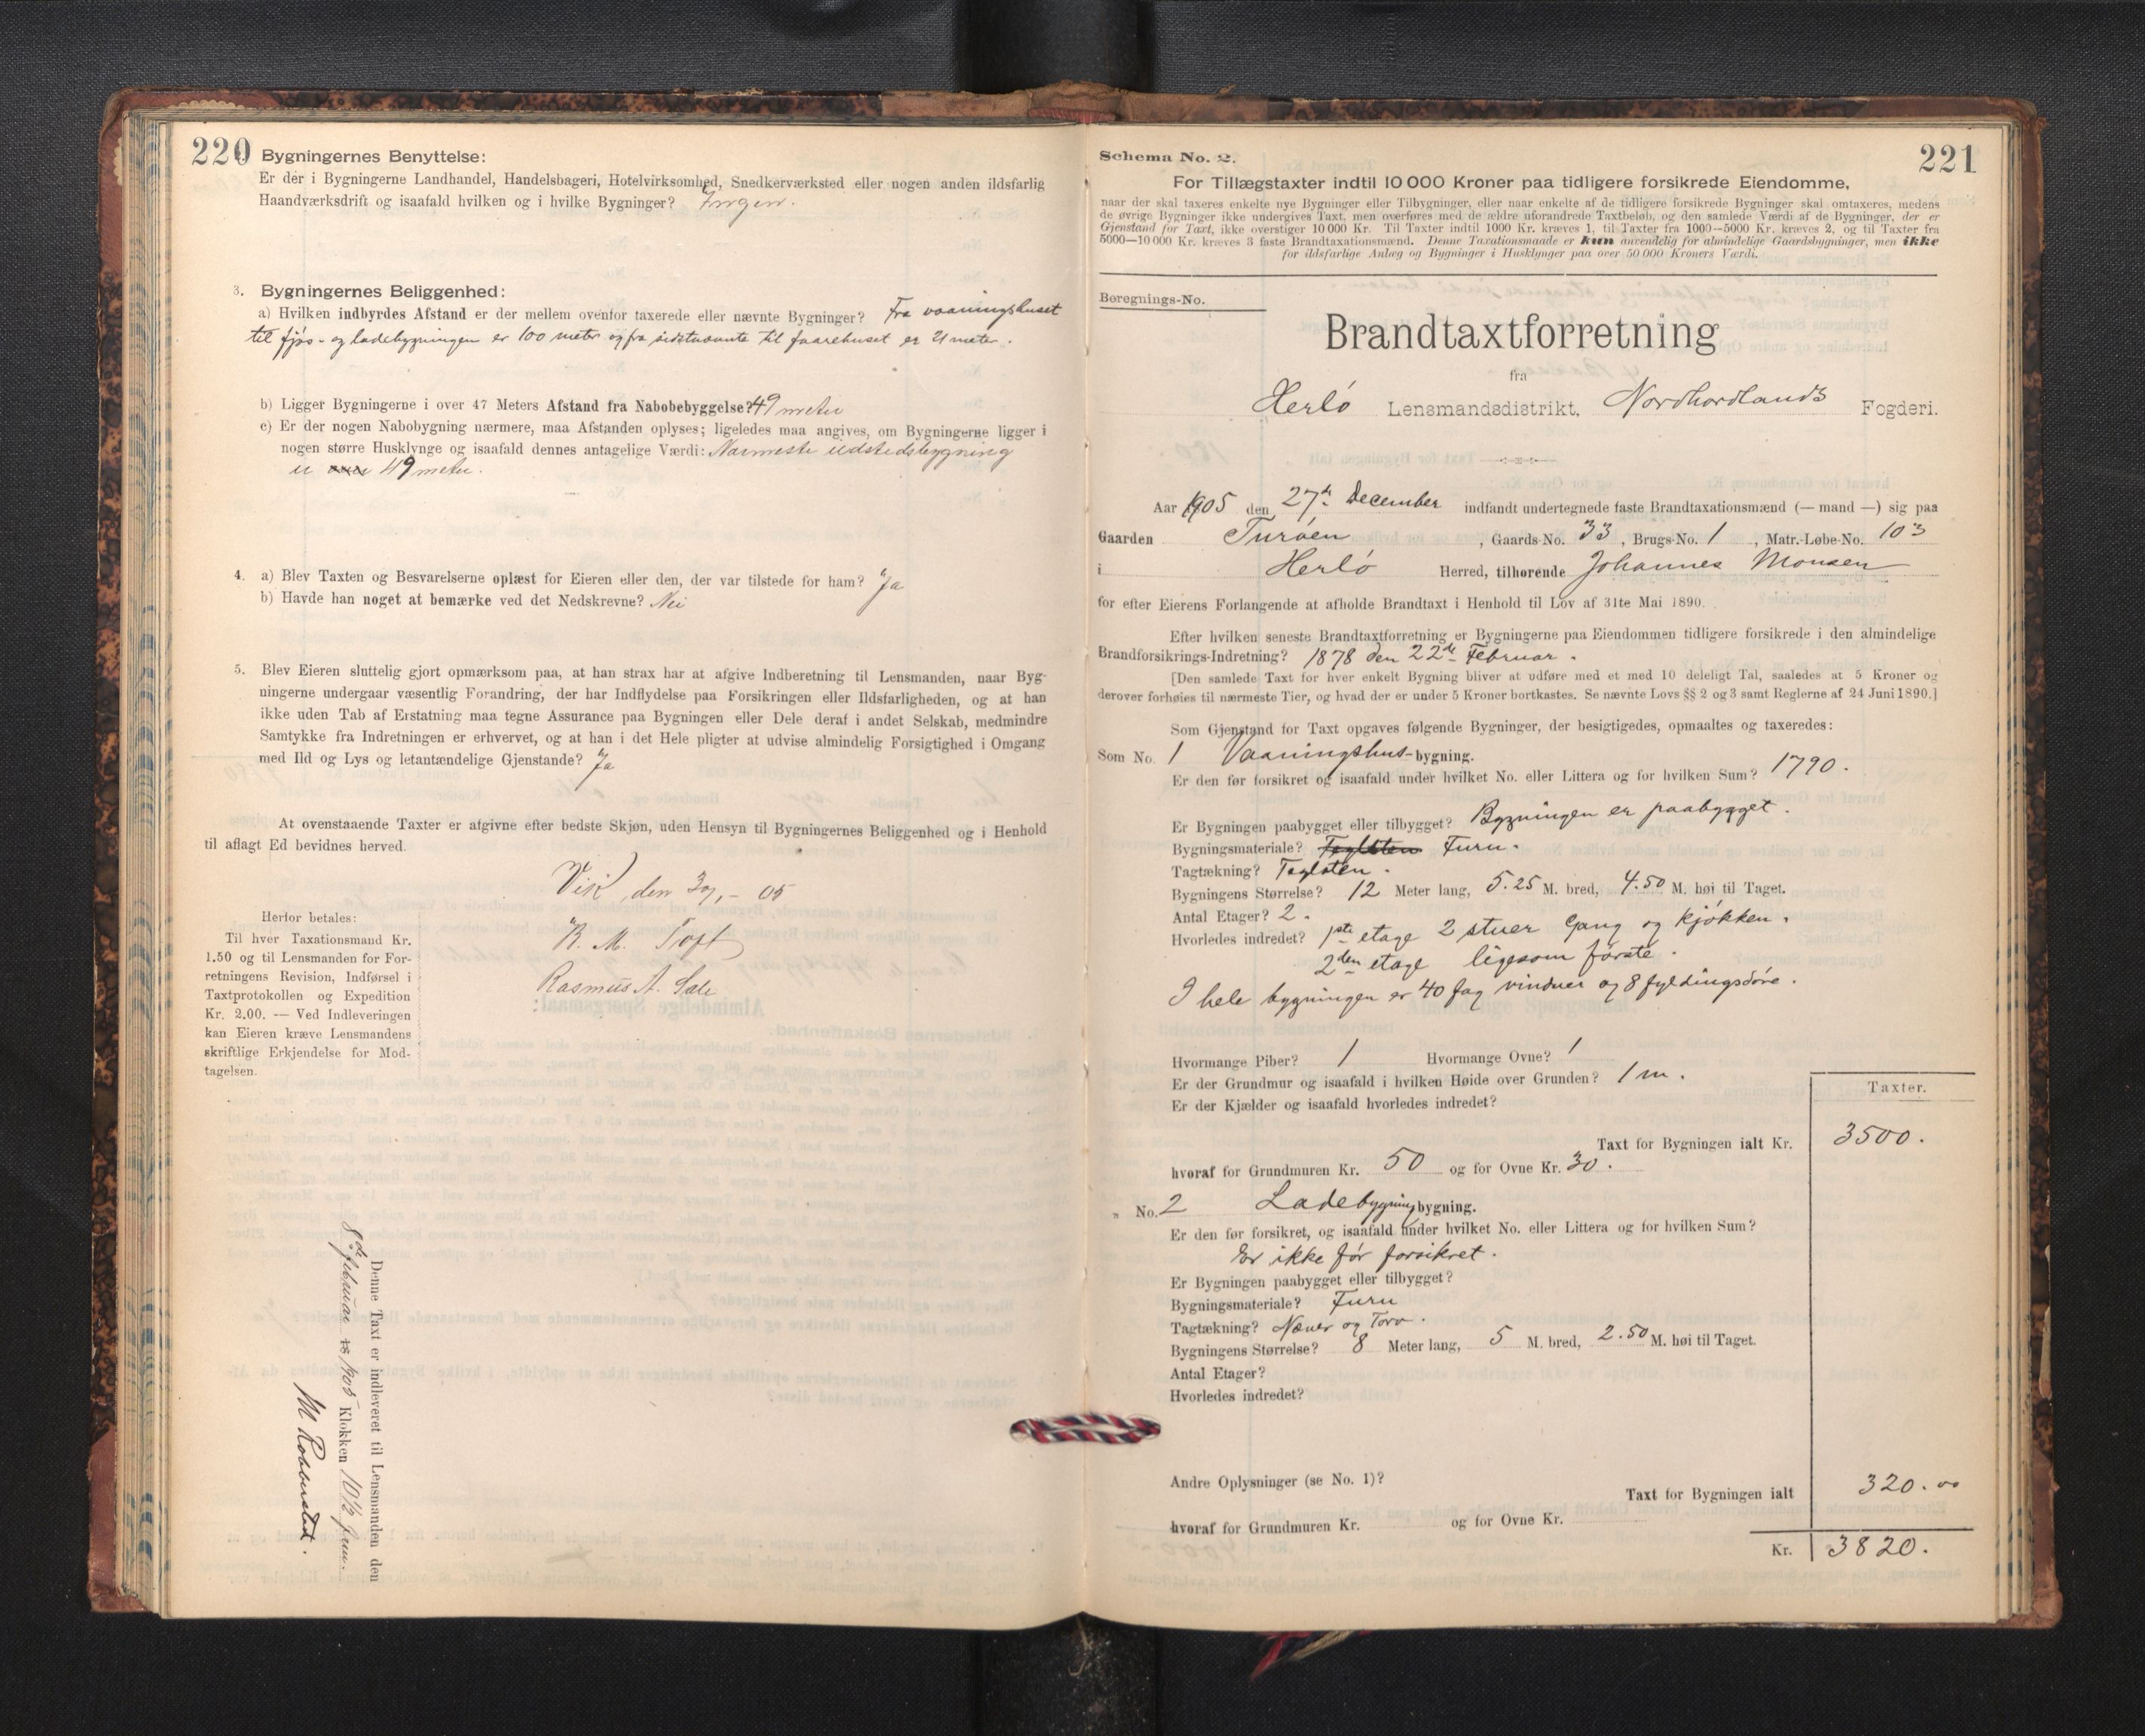 220
Bygningernes Benyttelse:
Er der i Bygningerne Landhandel, Handelsbageri, Hotelvirksomhed, Snedkerværksted eller nogen anden ildsfarlig
Haandværksdrift og isaafald hvilken og i hvilke Bygninger? Ingen.
3. Bygningernes Beliggenhed:
a) Hvilken indbyrdes Afstand er der mellem ovenfor taxerede eller nævnte Bygninger? Fra vaaningshuset
til fjøs- og ladebygningen er 100 meter og fra sidstnævnte til faarehuset er 21 meter.
b) Ligger Bygningerne i over 47 Meters Afstand fra Nabobebyggelse? 49 meter
c) Er der nogen Nabobygning nærmere, maa Afstanden oplyses; ligeledes maa angives, om Bygningerne ligger i
nogen større Husklynge og isaafald dennes antagelige Værdi: Nærmeste ildstedsbygning
er 49 meter.
4. a) Blev Taxten og Besvarelserne oplæst for Eieren eller den, der var tilstede for ham? Ja
b) Havde han noget at bemærke ved det Nedskrevne? Nei
5. Blev Eieren sluttelig gjort opmærksom paa, at han strax har at afgive Indberetning til Lensmanden, naar Byg-
ningerne undergaar væsentlig Forandring, der har Indflydelse paa Forsikringen eller Ildsfarligheden, og at han
ikke uden Tab af Erstatning maa tegne Assurance paa Bygningen eller Dele deraf i andet Selskab, medmindre
Samtykke fra Indretningen er erhvervet, og at han i det Hele pligter at udvise almindelig Forsigtighed i Omgang
med Ild og Lys og letantændelige Gjenstande? Ja
At ovenstaaende Taxter er afgivne efter bedste Skjøn, uden Hensyn til Bygningernes Beliggenhed og i Henhold
til aflagt Ed bevidnes herved.
Vik, den - 05
R. M. Toft
Rasmus A. Sale
Herfor betales:
Til hver Taxationsmand Kr.
1.50 og til Lensmanden for For-
retningens Revision, Indførsel i
Taxtprotokollen og Expedition
Kr. 2.00. — Ved Indleveringen
kan Eieren kræve Lensmandens
skriftlige Erkjendelse for Mod-
tagelsen.
Denne Taxt er indleveret til Lensmanden den
8de februar 18 1905 Klokken 10½ fm.
221
Schema No. 2.
For Tillægstaxter indtil 10 000 Kroner paa tidligere forsikrede Eiendomme,
naar der skal taxeres enkelte nye Bygninger eller Tilbygninger, eller naar enkelte af de tidligere forsikrede Bygninger skal omtaxeres, medens
de øvrige Bygninger ikke undergives Taxt, men overføres med de ældre uforandrede Taxtbeløb, og den samlede Værdi af de Bygninger, der er
Gjenstand for Taxt, ikke overstiger 10 000 Kr. Til Taxter indtil 1000 Kr. kræves 1, til Taxter fra 1000—5000 Kr. kræves 2, og til Taxter fra
5000—10 000 Kr. kræves 3 faste Brandtaxationsmænd. Denne Taxationsmaade er kun anvendelig for almindelige Gaardsbygninger, men ikke
for ildsfarlige Anlæg og Bygninger i Husklynger paa over 50 000 Kroners Værdi.
Beregnings-No.
Brandtaxtforretning
fra
Herlö Lensmandsdistrikt, Nordhordlands Fogderi.
Aar 1905 den 27de December indfandt undertegnede faste Brandtaxationsmænd (— mand —) sig paa
Gaarden Turöen, Gaards-No. 33, Brugs-No. 1, Matr.-Løbe-No. 103
i Herlö Herred, tilhørende Johannes Monsen
for efter Eierens Forlangende at afholde Brandtaxt i Henhold til Lov af 31te Mai 1890.
Efter hvilken seneste Brandtaxtforretning er Bygningerne paa Eiendommen tidligere forsikrede i den almindelige
Brandforsikrings-Indretning? 1878 den 22de Februar.
[Den samlede Taxt for hver enkelt Bygning bliver at udføre med et med 10 deleligt Tal, saaledes at 5 Kroner og
derover forhøies til nærmeste Tier, og hvad der er under 5 Kroner bortkastes. Se nævnte Lovs §§ 2 og 3 samt Reglerne af 24 Juni 1890.]
Som Gjenstand for Taxt opgaves følgende Bygninger, der besigtigedes, opmaaltes og taxeredes:
Som No. 1 Vaaningshus-bygning.
Er den før forsikret og isaafald under hvilket No. eller Littera og for hvilken Sum? 1790.
Er Bygningen paabygget eller tilbygget? Bygningen er paabygget.
Bygningsmateriale? Taglsten Furu.
Tagtækning? Taglsten.
Bygningens Størrelse? 12 Meter lang, 5.25 M. bred, 4.50 M. høi til Taget.
Antal Etager? 2.
Hvorledes indredet? 1ste etage 2 stuer Gang og kjökken.
2den etage ligesom förste.
I hele bygningen er 40 fag vinduer og 8 fyldingsdöre.
Hvormange Piber? 1 Hvormange Ovne? 1
Er der Grundmur og isaafald i hvilken Høide over Grunden? 1 m.
Er der Kjælder og isaafald hvorledes indredet?
Taxter.
Taxt for Bygningen ialt Kr. 3500.
hvoraf for Grundmuren Kr. 50 og for Ovne Kr. 30.
" No. 2 Ladebygning bygning.
Er den før forsikret, og isaafald under hvilket No. eller Littera og for hvilken Sum?
Er ikke för forsikret.
Er Bygningen paabygget eller tilbygget?
Bygningsmateriale? Furu
Tagtækning? Næver og Torv.
Bygningens Størrelse? 8 Meter lang, 5 M. bred, 2.50 M. høi til Taget.
Antal Etager?
Hvorledes indredet?
Andre Oplysninger (se No. 1)?
Taxt for Bygningen ialt 320.00
hvoraf for Grundmuren Kr. og for Ovne Kr.
Kr. 3820.